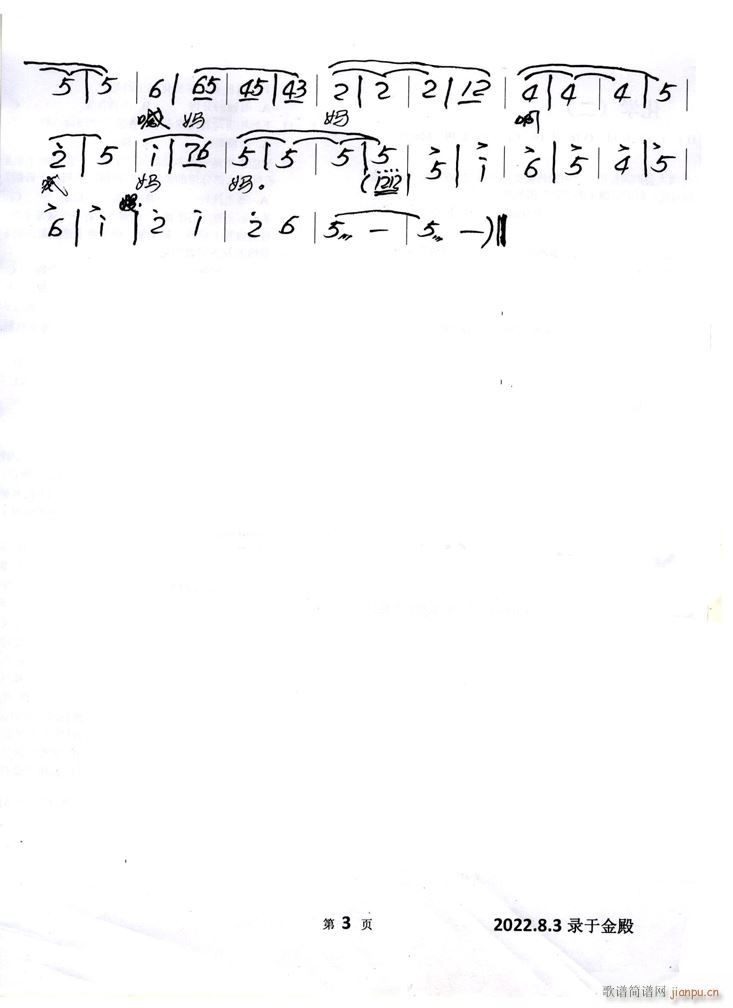 5 | 5 | 6 | 65 | 45 | 43 | 2 | 2 | 2 | 12 | 4 | 4 | 4 | 5 |
喊 妈 妈 啊
2̇ | 5 | i | 76 | 5 | 5 | 5 | 5 | 5 | i | 6 | 5 | 4 | 5 |
喊 妈 妈。 (i̇2̇i̇2̇
6 | i | 2̇ i | 2̇ 6 | 5 — | 5 — ) ‖
第 3 页 2022.8.3 录于金殿
歌谱简谱网
jianpu.cn